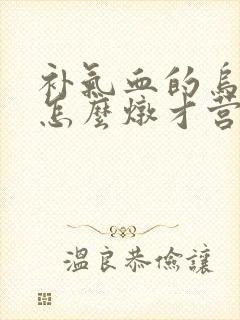 补氣血的烏
怎麼燉才营
溫良恭儉讓